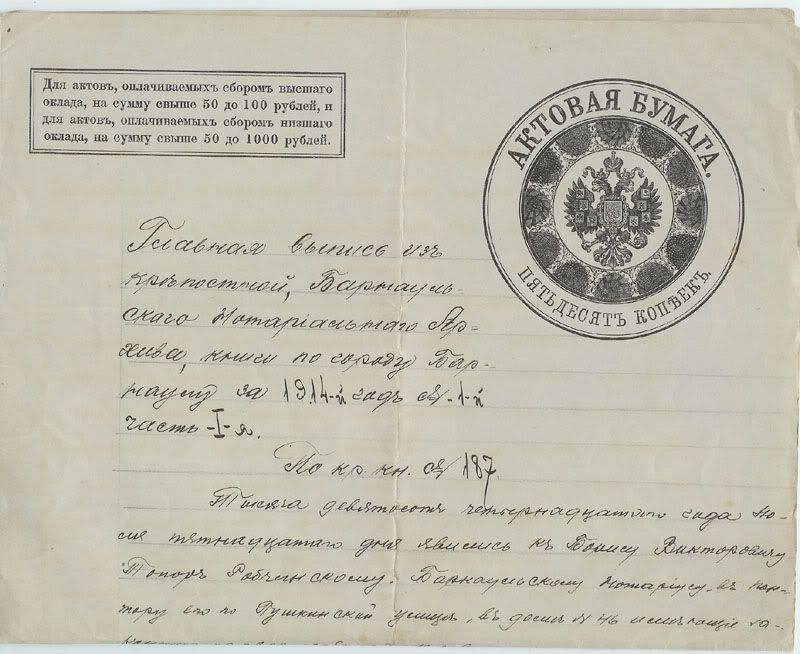 Для актовъ, оплачиваемыхъ сборомъ высшаго
оклада, на сумму свыше 50 до 100 рублей, и
для актовъ, оплачиваемыхъ сборомъ низшаго
оклада, на сумму свыше 50 до 1000 рублей.
АКТОВАЯ БУМАГА.
ПЯТЬДЕСЯТЪ КОПѢЕКЪ.
Главная выпись изъ
крѣпостной, Барнауль-
скаго Нотаріальнаго Ар-
хива, книги по городу Бар-
наулу за 1914-й годъ № 1-й
часть -I-я.
По кр. кн. № 187.
Тысяча девятьсотъ четырнадцатаго года
пятнадцатаго дня явились къ Борису Викторовичу
Топоръ Робчинскому, Барнаульскому Нотаріусу, въ кон-
тору его по Пушкинской улицѣ, въ домѣ № 46